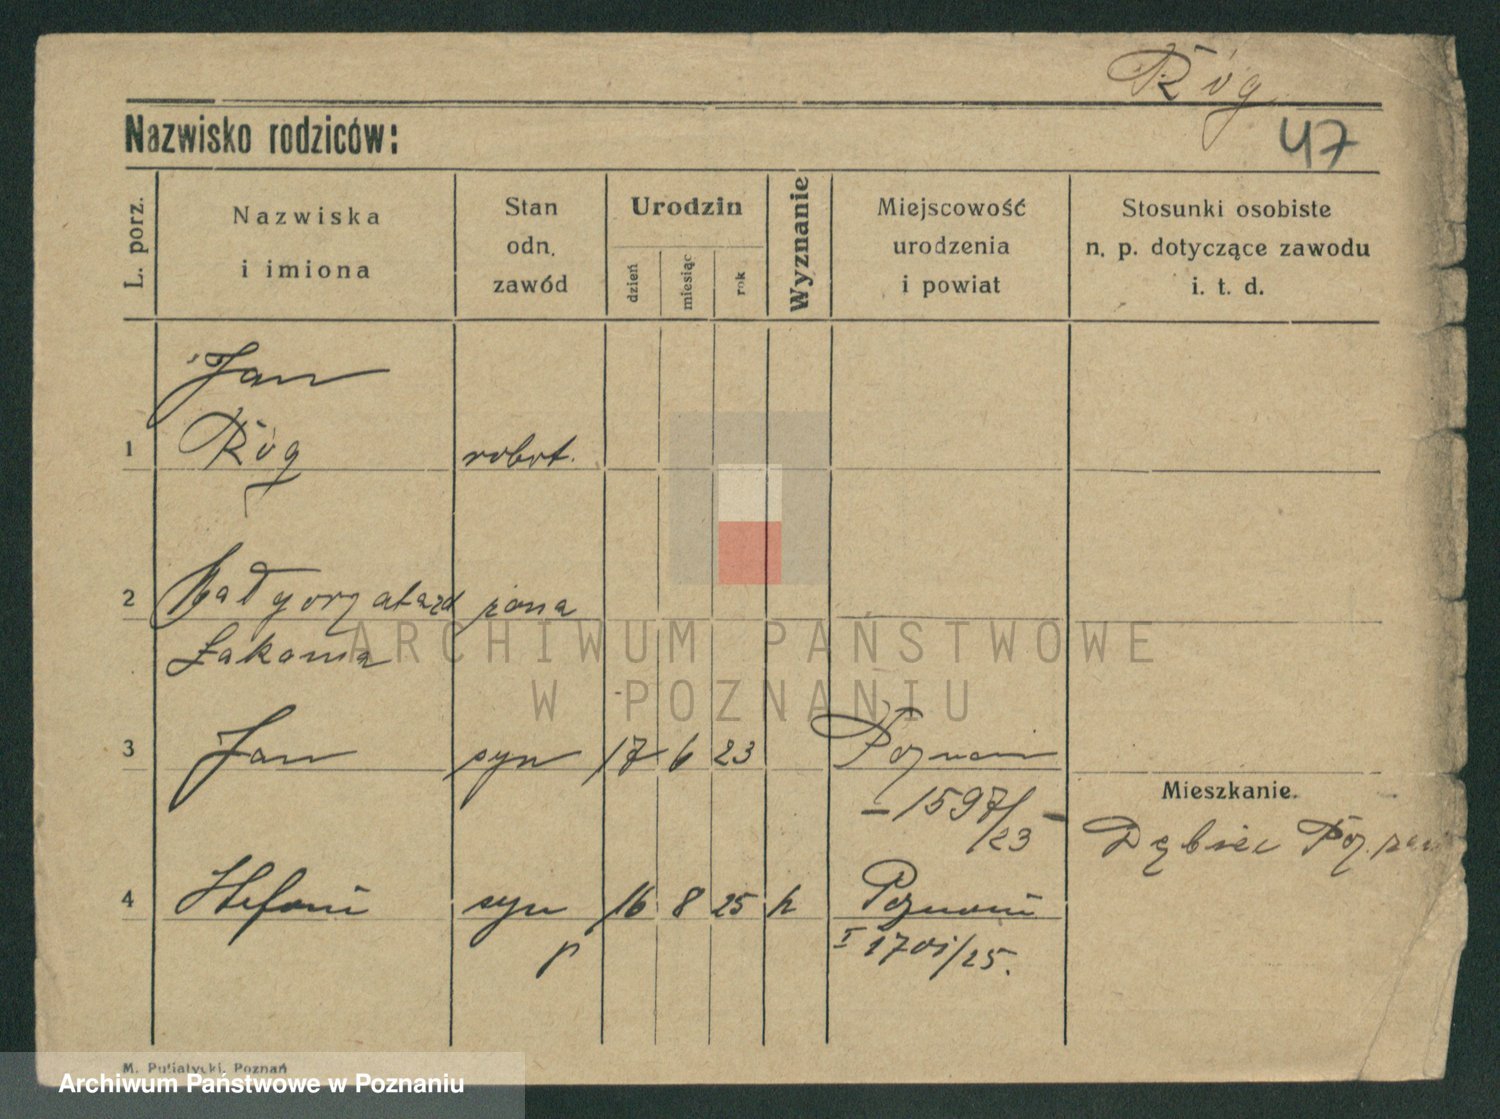 Róg
Nazwisko rodziców:
47
L. porz.
Nazwiska
i imiona
Stan
odn.
zawód
Urodzin
dzień
miesiąc
rok
Wyznanie
Miejscowość
urodzenia
i powiat
Stosunki osobiste
n. p. dotyczące zawodu
i. t. d.
Jan
1 Róg robot.
2 Małgorzata zd żona
ARCHIWUM PAŃSTWOWE
W POZNANIU
3 Jan syn 17 6 23 Poznań
– 1597/23 –
Mieszkanie.
Dębiec
4 Stefan syn 16 8 25 k Poznań
I 1701/25.
M. Putiatycki, Poznań
Archiwum Państwowe w Poznaniu